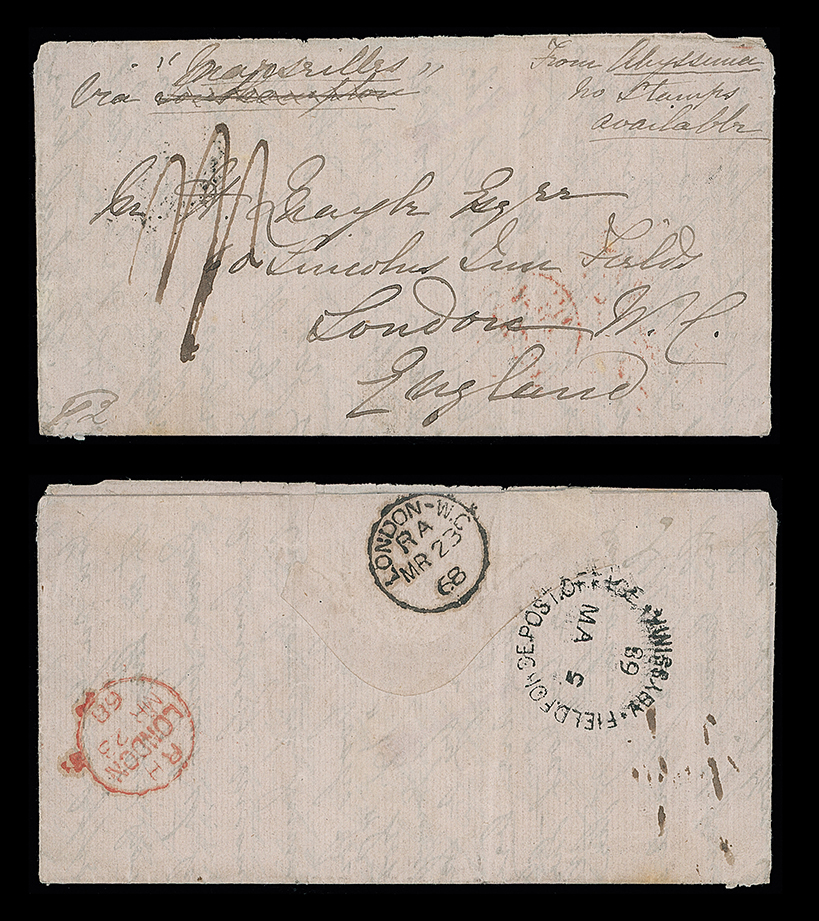 " Marseilles "
Via Southampton
From Abyssinia
no Stamps
available
H. Quayle Esqre
60 Lincolns Inn Fields
London W.C.
England
LONDON-W.C
RA
MR 23
68
FIELD.FORCE.POST.OFFICE ABYSSINIA
MA
5
68
RH
LONDON
MR 23
68